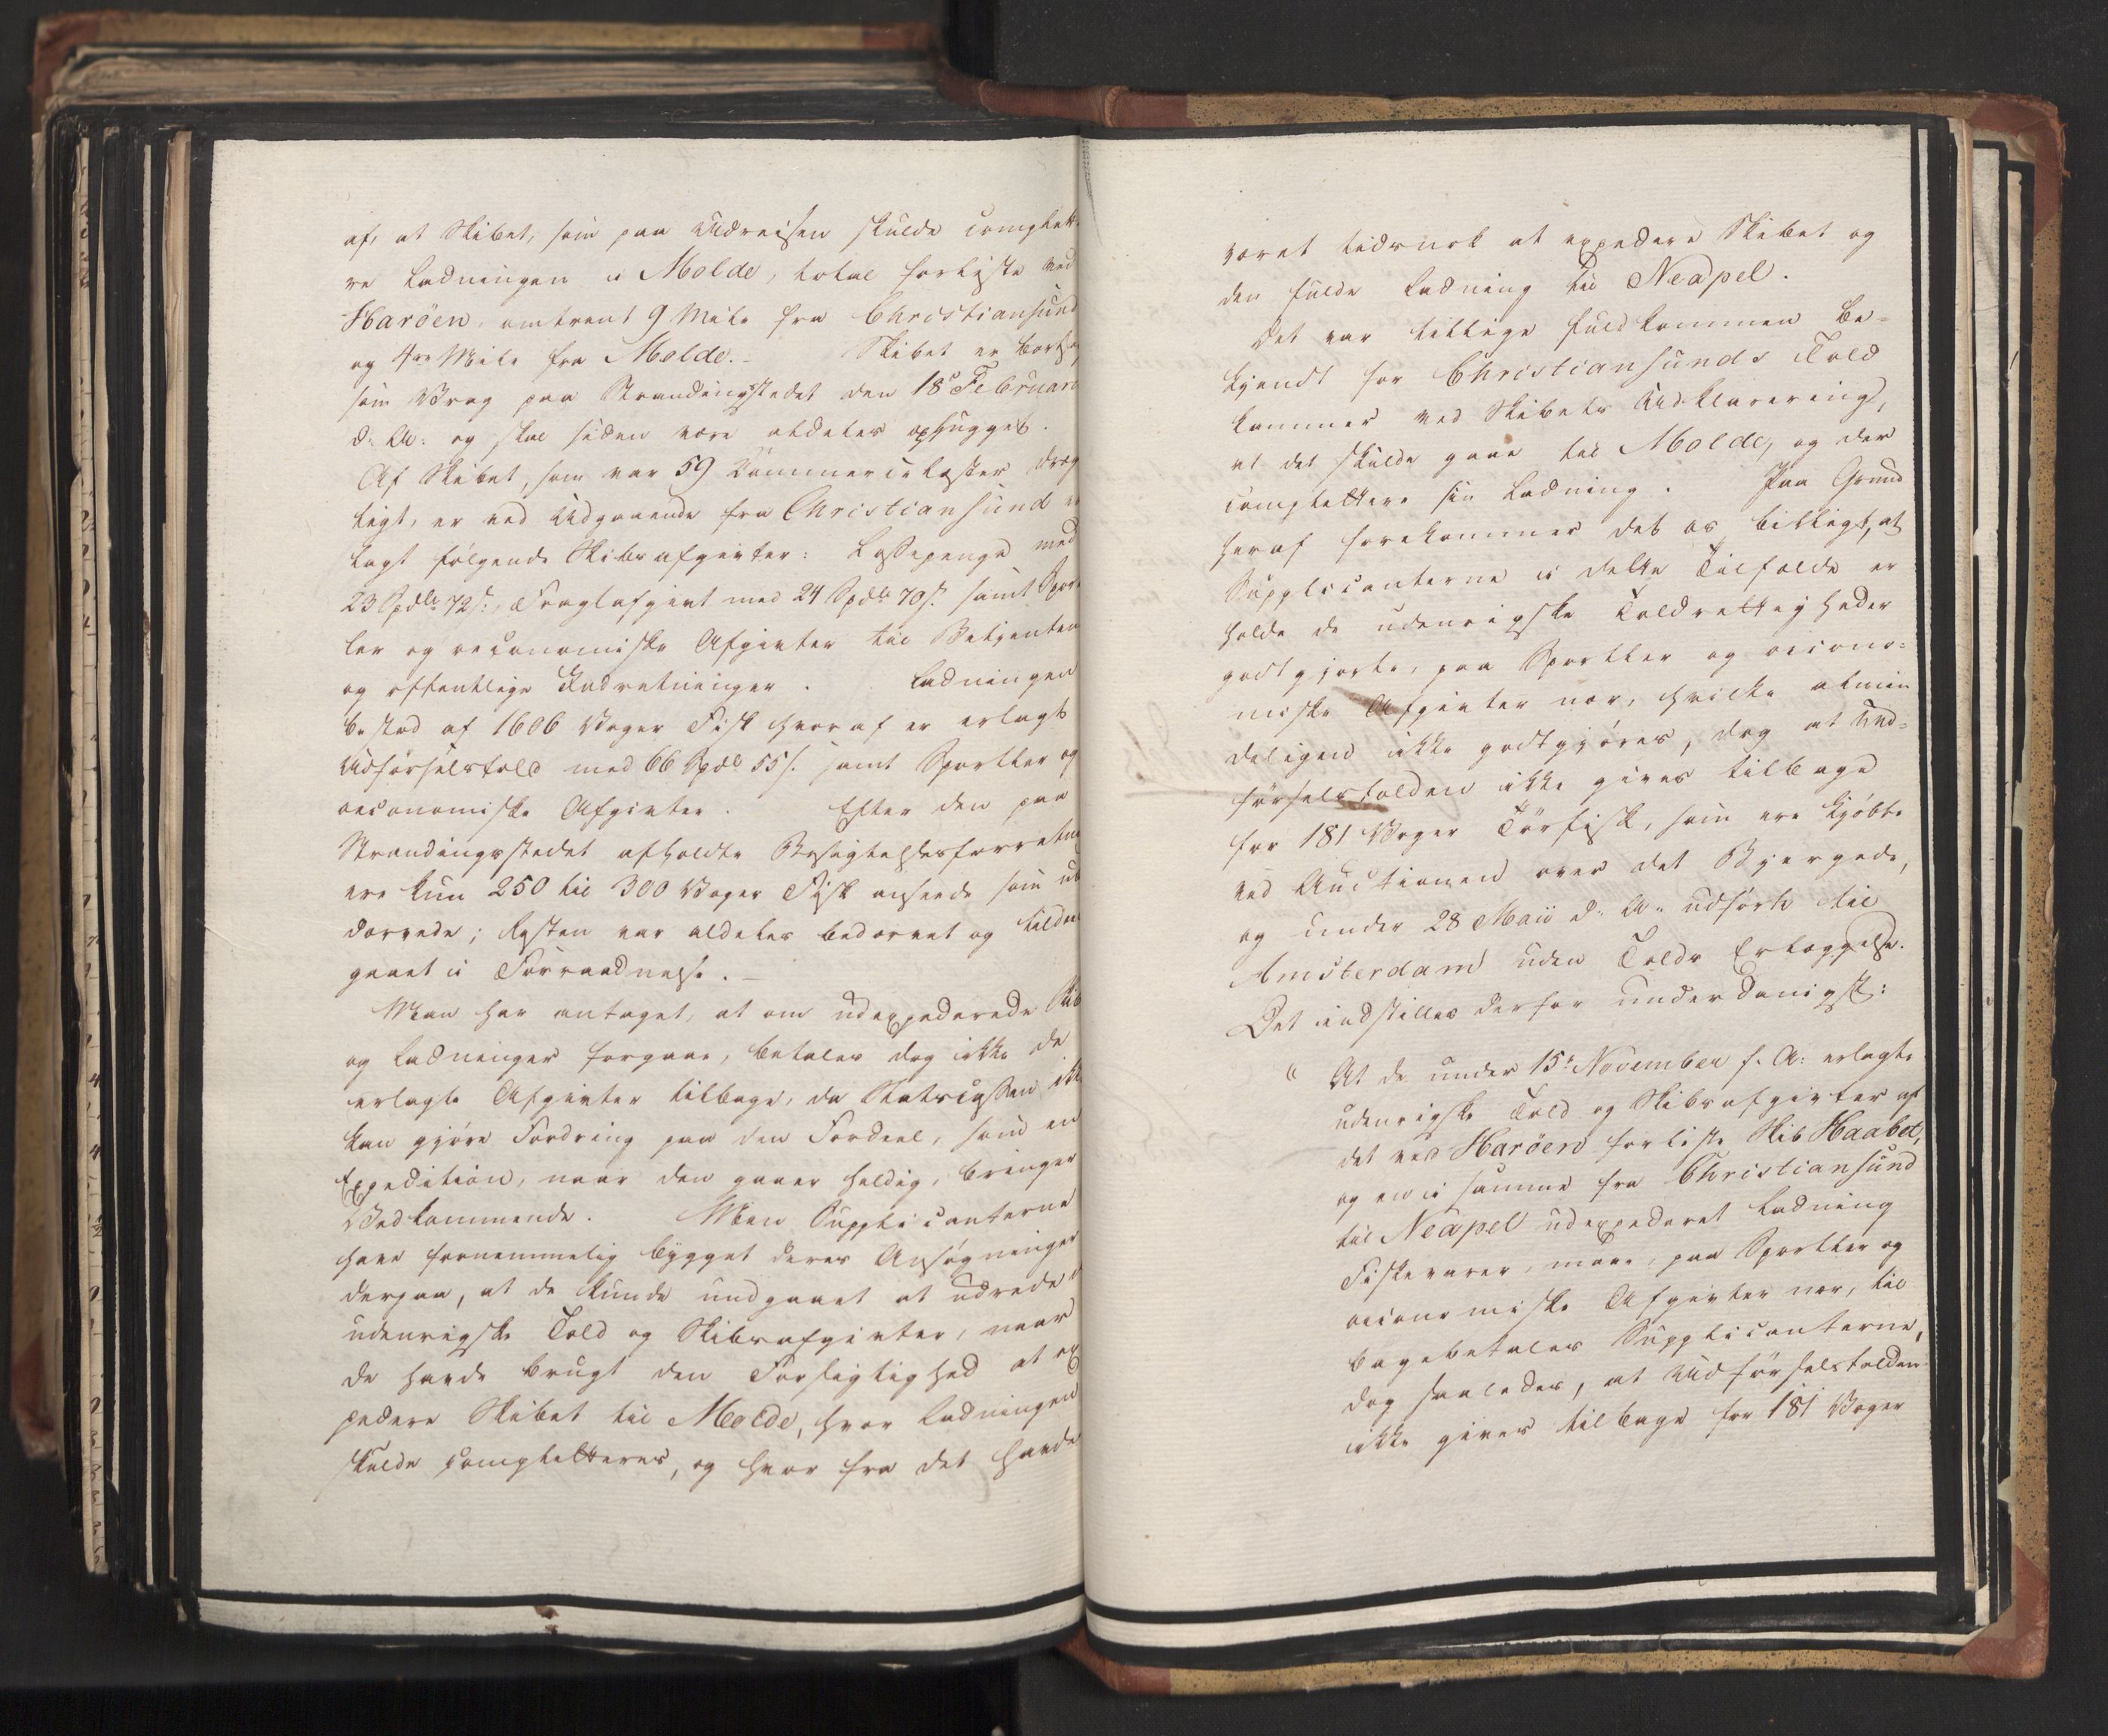 af, at Skibet, som paa Udreisen skulde complett-
re Ladningen i Molde, total forliste ved
Haröen, omtrent 9 Mile fra Christiansund
og 4re Mile fra Molde. – Skibet er bortsolgt
som Vrag paa Strandingsstedet den 18de Februari
d: A: og skal siden være aldeles ophugget.
Af Skibet, som var 59 Commerce Læster dræg
tigt, er ved Udgaaende fra Christiansund er
lagt følgende Skibsafgivter: Læstepenge med
23 Spdlr 72 s:, Fragtafgivt med 24 Spdlr 70 s. samt Sport-
ler og oeconomiske Afgivter til Betjenten
og offentlige Indretninger. Ladningen
bestod af 1606 Voger Fisk hvoraf er erlagt
Udførselstold med 66 Spdlr 55 s. samt Sportler og
oeconomiske Afgivter. Efter den paa
Strandingsstedet afholdte Besigtelsesforretning
ere kun 250 til 300 Voger Fisk anseede som ube
dærvede; Resten var aldeles bedærvet og tildeels
gaaet i Forraadnelse. –
Man har antaget, at om udexpederede Skibe
og Ladninger forgaae, betales dog ikke de
erlagte Afgivter tilbage, da Statscassen ikke
kan gjøre Fordring paa den Fordeel, som en
Expedition, naar den gaaer heldig, bringer
Vedkommende. Men Supplicanterne
have fornemmelig bygget deres Ansøgninger
derpaa, at de kunde undgaaet at udrede
udenrigske Told og Skibsafgivter, naar
de havde brugt den Forsigtighed at ex
pedere Skibet til Molde, hvor Ladningen
skulde completteres, og hvor fra det havde
været tidsnok at expedere Skibet og
den fulde Ladning til Neapel.
Det var tillige fuldkommen be-
kjendt for Christiansunds Told
kammer ved Skibets Udklarering,
at det skulde gaae til Molde, og der
complettere sin Ladning. Paa Grund
heraf forekommer det os billigt, at
Supplicanterne i dette Tilfælde er
holde de udenrigske Toldrettigheder
godtgjorte, paa Sportler og oicono-
miske Afgivter nær, hvilke almin
deligen ikke godtgjøres, dog at Ud-
førselstolden ikke gives tilbage
for 181 Voger Tørfisk, som ere kjøbte
ved Auctionen over det Bjergede,
og under 28 Maii d: A: udførte til
Amsterdam uden Tolds Erlæggelse.
Det indstilles derfor underdanigst:
"At de under 15de November f. A: erlagte
udenrigske Told og Skibsafgivter af
det ved Haröen forliste Skib Haabet,
og en i samme fra Christiansund
til Neapel udexpederet Ladning
Fiskevarer, maae, paa Sportler og
oiconomiske Afgivter nær, til
bagebetales Supplicanterne,
dog saaledes, at Udførselstolden
ikke gives tilbage for 181 Voger